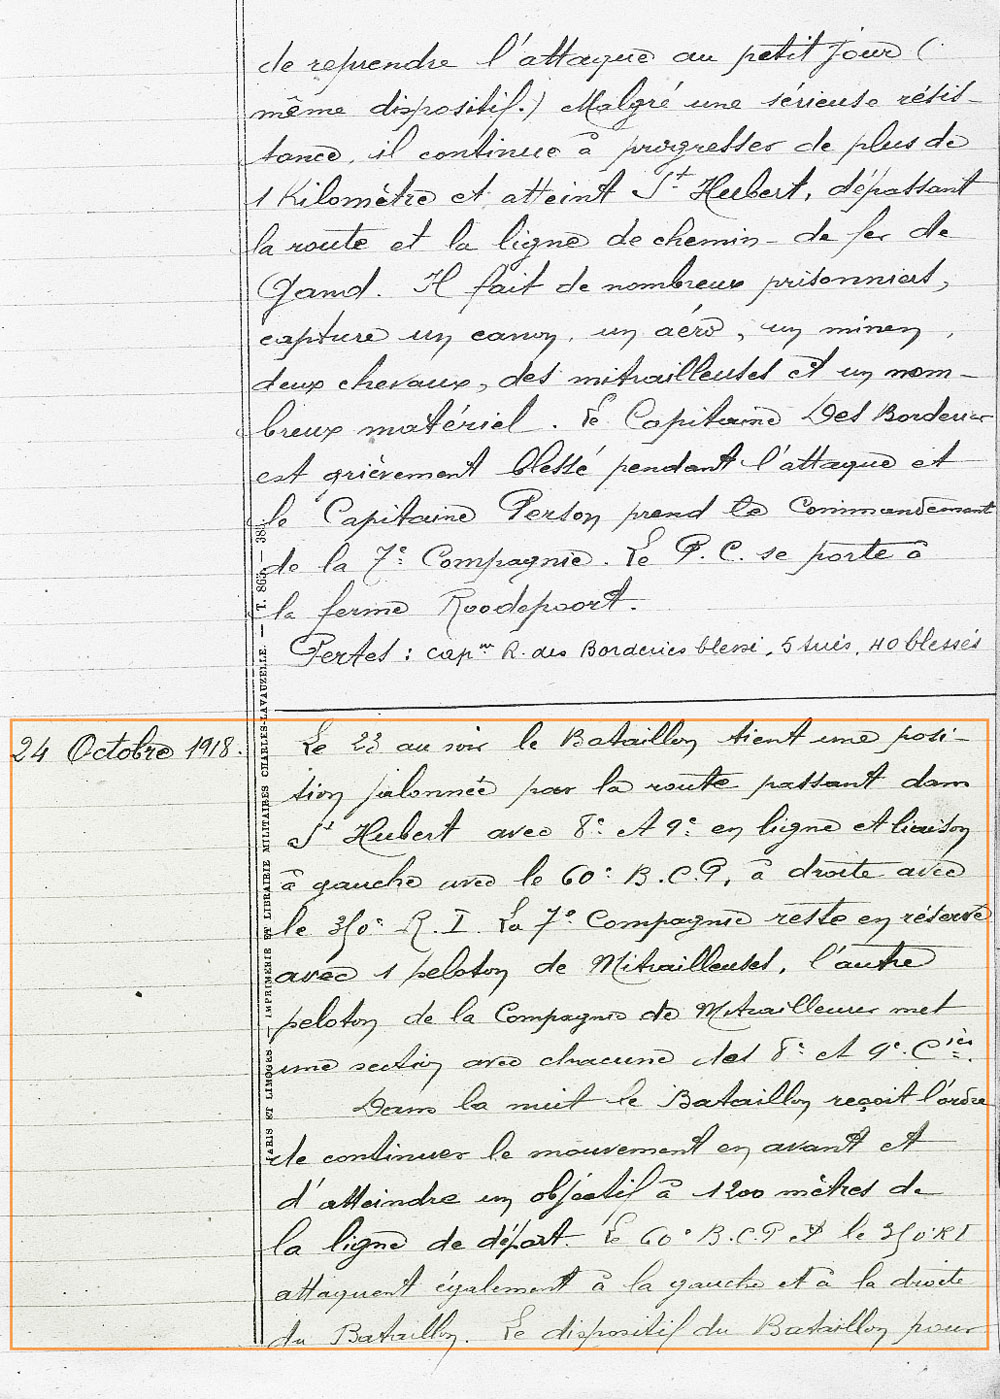 de reprendre l'attaque au petit jour (
même dispositif.) Malgré une sérieuse résis-
tance, il continue à progresser de plus de
1 Kilomètre et atteint St Hubert, dépassant
la route et la ligne de chemin-de fer de
Gand. Il fait de nombreux prisonniers,
capture un canon, un aéro, un minen,
deux chevaux, des mitrailleuses et un nom-
breux matériel. Le Capitaine Des Borderies
est grièvement blessé pendant l'attaque et
le Capitaine Person prend le Commandement
de la 7e Compagnie. Le P.C. se porte à
la ferme Roodepoort.
Pertes : capne R. des Borderies blessé, 5 tués, 40 blessés
24 Octobre 1918. Le 23 au soir le Bataillon tient une posi-
tion jalonnée par la route passant dans
St Hubert avec 8e et 9e en ligne et liaison
à gauche avec le 60e B.C.P, à droite avec
le 350e R.I. La 7e Compagnie reste en réserve
avec 1 peloton de Mitrailleuses, l'autre
peloton de la Compagnie de Mitrailleuses met
une section avec chacune des 8e et 9e Cies.
Dans la nuit le Bataillon reçoit l'ordre
de continuer le mouvement en avant et
d'atteindre un objectif à 1200 mètres de
la ligne de départ. Le 60e B.C.P et le 350e RI
attaquent également à la gauche et à la droite
du Bataillon. Le dispositif du Bataillon pour
PARIS ET LIMOGES. — IMPRIMERIE ET LIBRAIRIE MILITAIRES CHARLES-LAVAUZELLE. — T. 865.